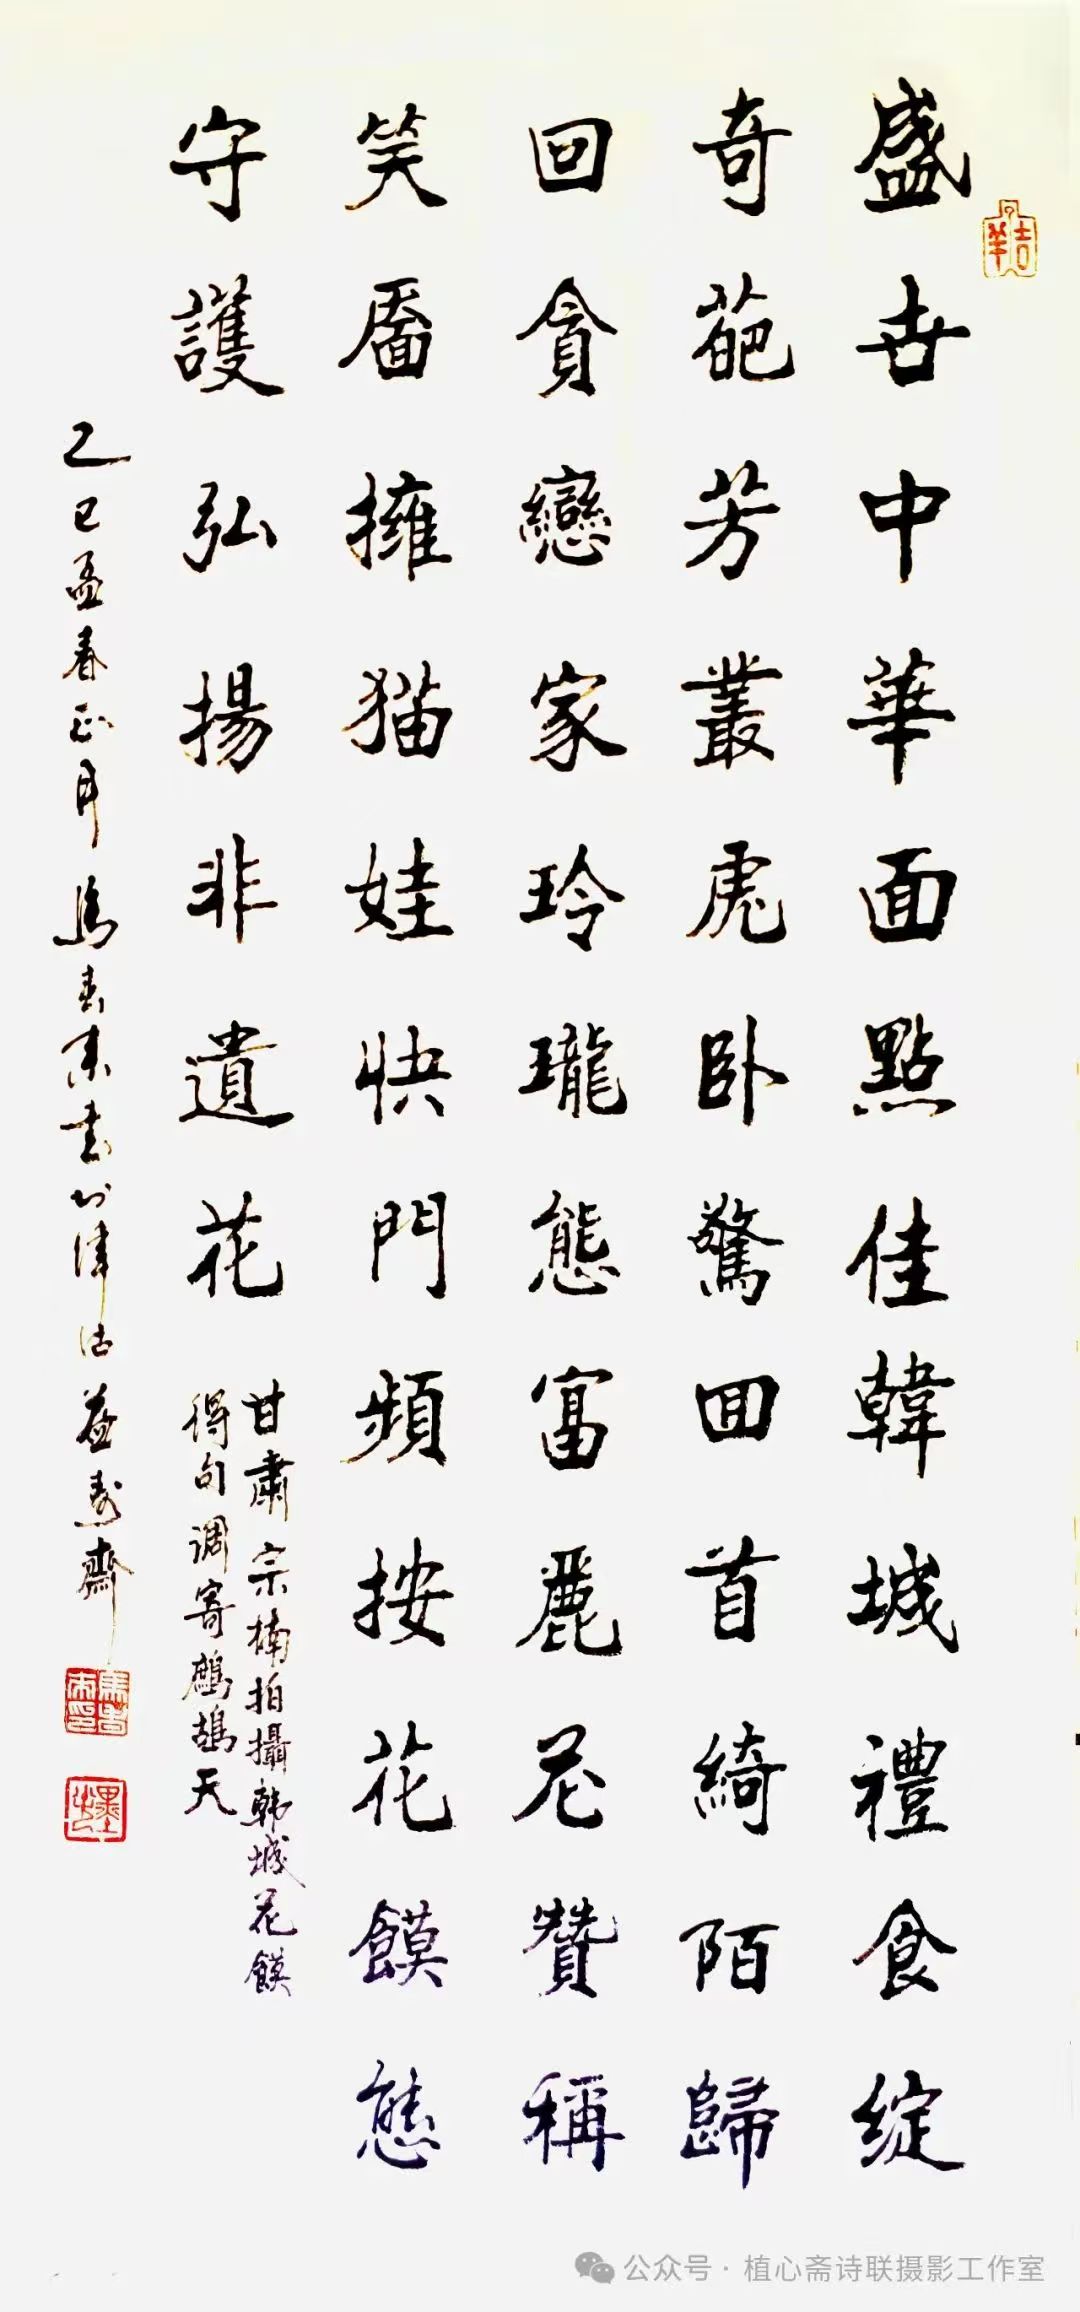 盛世中華面點佳韓城禮食綻
奇葩芳叢虎卧驚囬首綺陌歸
回貪戀家玲瓏態富麗花贊稱
笑靨擁猫娃快門頻按花饃態
守護弘揚非遺花
甘肅宗楠拍攝韩城花饃
得句调寄鷓鴣天
乙巳孟春正月馬書来书於津沽益寿齋
公众号·植心斋诗联摄影工作室